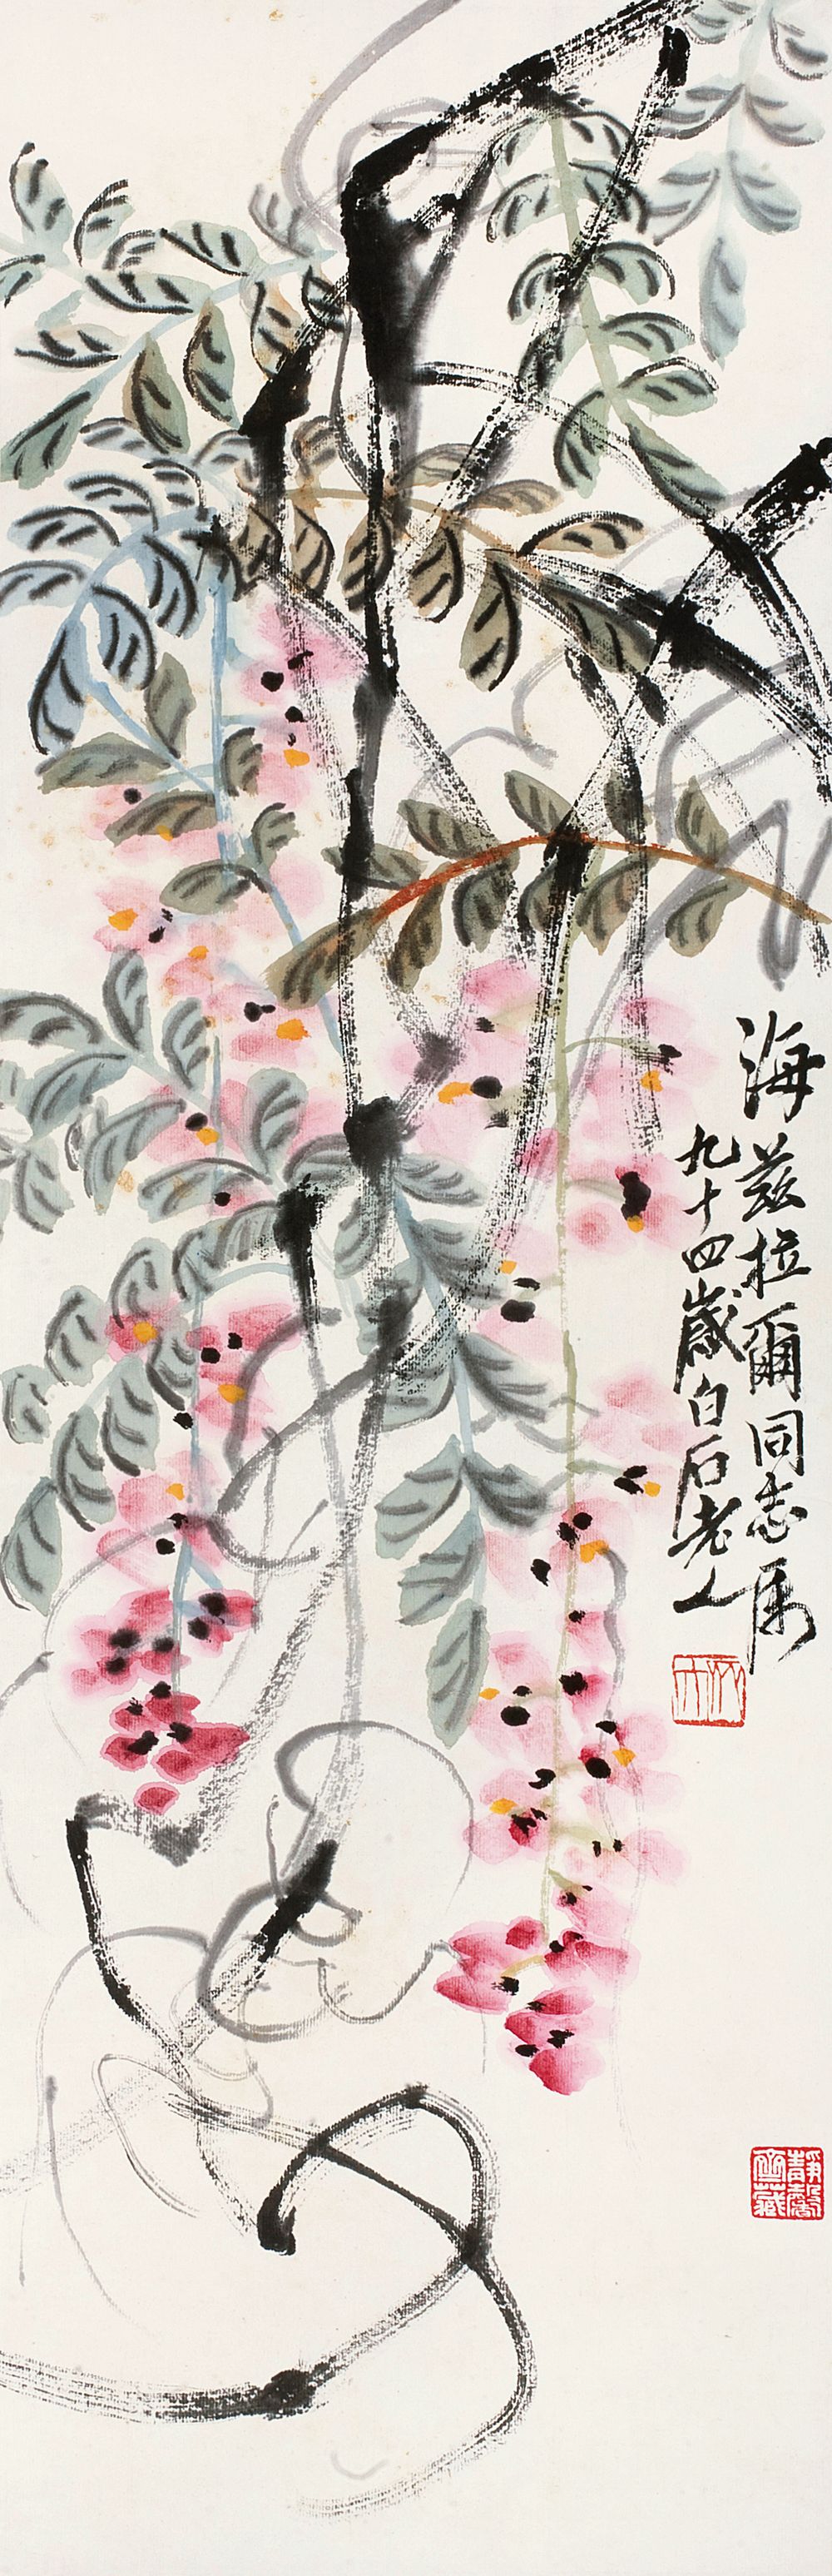 海兹拉爾同志属
九十四歲白石老人